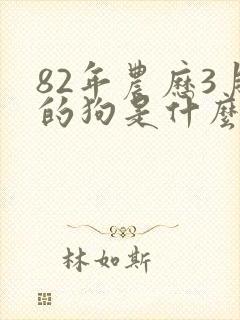 82年農曆3月
的狗是什麼
林如斯